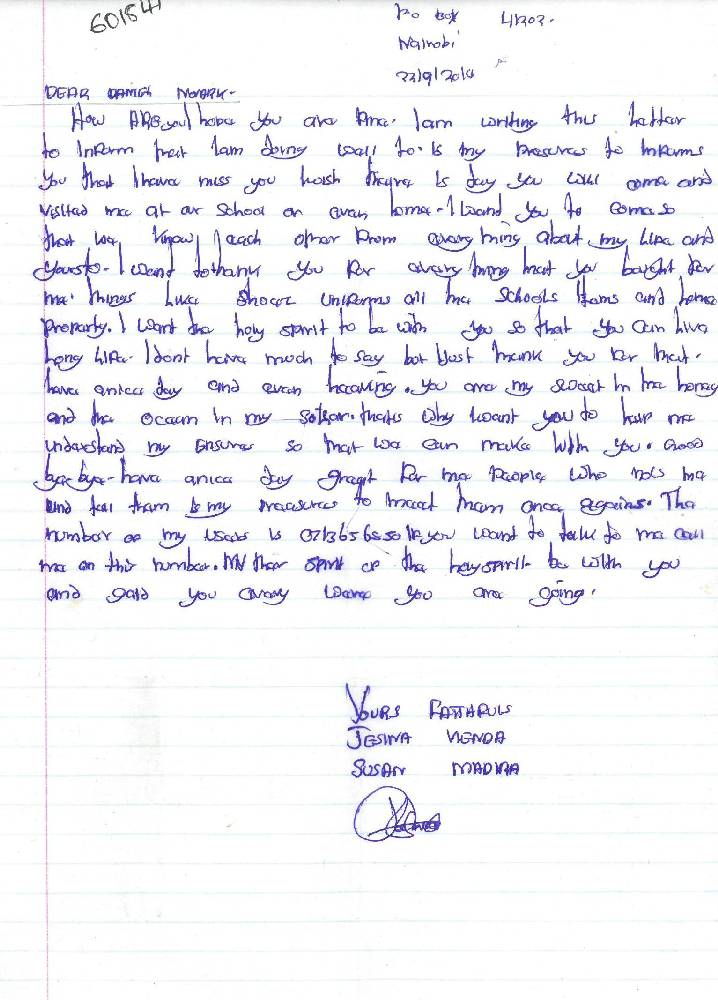 601841
Po box 41202.
Nairobi
23/9/2014
DEAR DANIEL NOVARK.
How ARE you I hope you are fine. Iam writing this letter
to Inform that Iam doing well to. Is my presures to Informs
You that I have miss you I wish there Is day you will come and
visited me at our School or even home. I want you to come so
that we know each other from every thing about my life and
yours to. I want to thank you for every thing that you bought for
me. things like Shoes uniforms all the schools Items and home
Property. I want the holy spirit to be with you so that you can live
long life. I dont have much to say but Just thank you for that.
have anice day and even heaving. You are my sweet In the honey
and the ocean In my that is why I want you to help me
understand my so that we can make with you. Good
bye bye. have anice day greet for me people who nows me
and tell them Is my measures to meet them once agains. The
number of my Is 0713656 If you want to talk to me call
me on this number. the spirit of the holy spirit be with you
and gaid you every were you are going.
YOURS FAITHFULS
JESINA
SUSAN